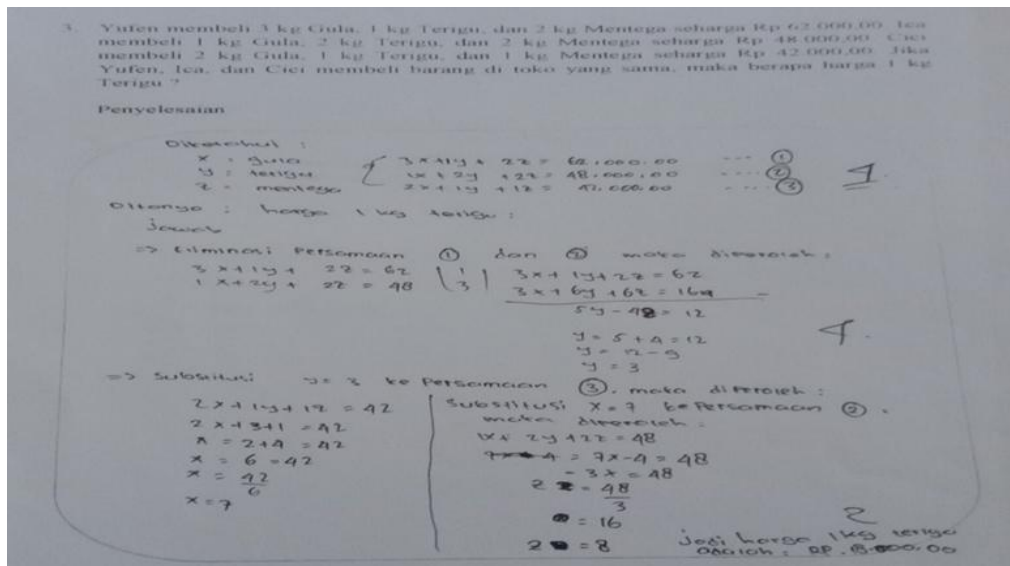 3. Yufen membeli 3 kg Gula, 1 kg Terigu, dan 2 kg Mentega seharga Rp 62.000,00. Ica
membeli 1 kg Gula, 2 kg Terigu, dan 2 kg Mentega seharga Rp 48.000,00. Cici
membeli 2 kg Gula, 1 kg Terigu, dan 1 kg Mentega seharga Rp 42.000,00. Jika
Yufen, Ica, dan Cici membeli barang di toko yang sama, maka berapa harga 1 kg
Terigu ?
Penyelesaian
Diketahui :
x : gula { 3x+1y+ 2z = 62.000.00 ---- ①
y : terigu 1x + 2y +2z = 48.000.00 ---- ②
z = mentega 2x+1y +1z = 42.000.00 ---- ③ 1
Ditanya : harga 1 kg terigu :
Jawab
=> Eliminasi Persamaan ① dan ② maka diperoleh :
3x+1y+ 2z = 62 | 1 | 3x+ 1y+2z = 62
1x+2y+ 2z = 48 | 3 | 3x+6y+6z = 164 -
5y - 4z = 12
y = 5 + 4 = 12
y = 12 - 9 4
y = 3
=> Substitusi y = 3 ke Persamaan ③, maka diperoleh :
2x+1y+1z = 42
2x+3+1 = 42
x = 2+4 = 42
x = 6 = 42
x = 42
6
x = 7
Substitusi x = 7 ke Persamaan ②.
maka diperoleh :
1x+ 2y+2z = 48
= 7x-4 = 48
= 3x = 48
2 = 48
3
= 16
2 = 8
2
Jadi harga 1kg terigu
adalah : RP. 000.00